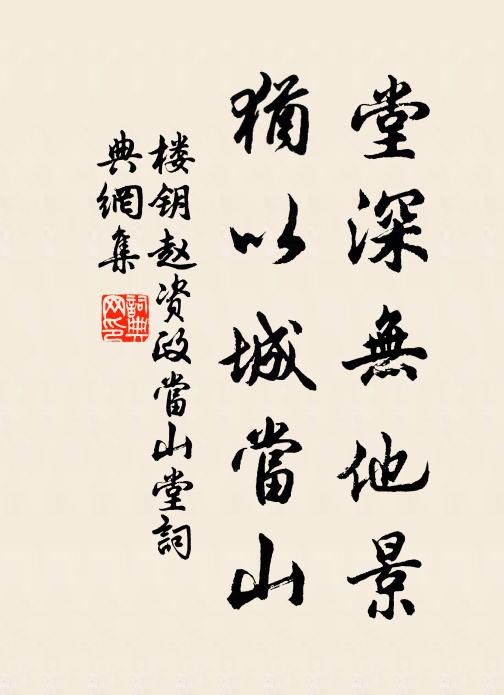 堂深無他景
猶以城當山
楼钥赵资政當山堂詞
典網集
詞典网印